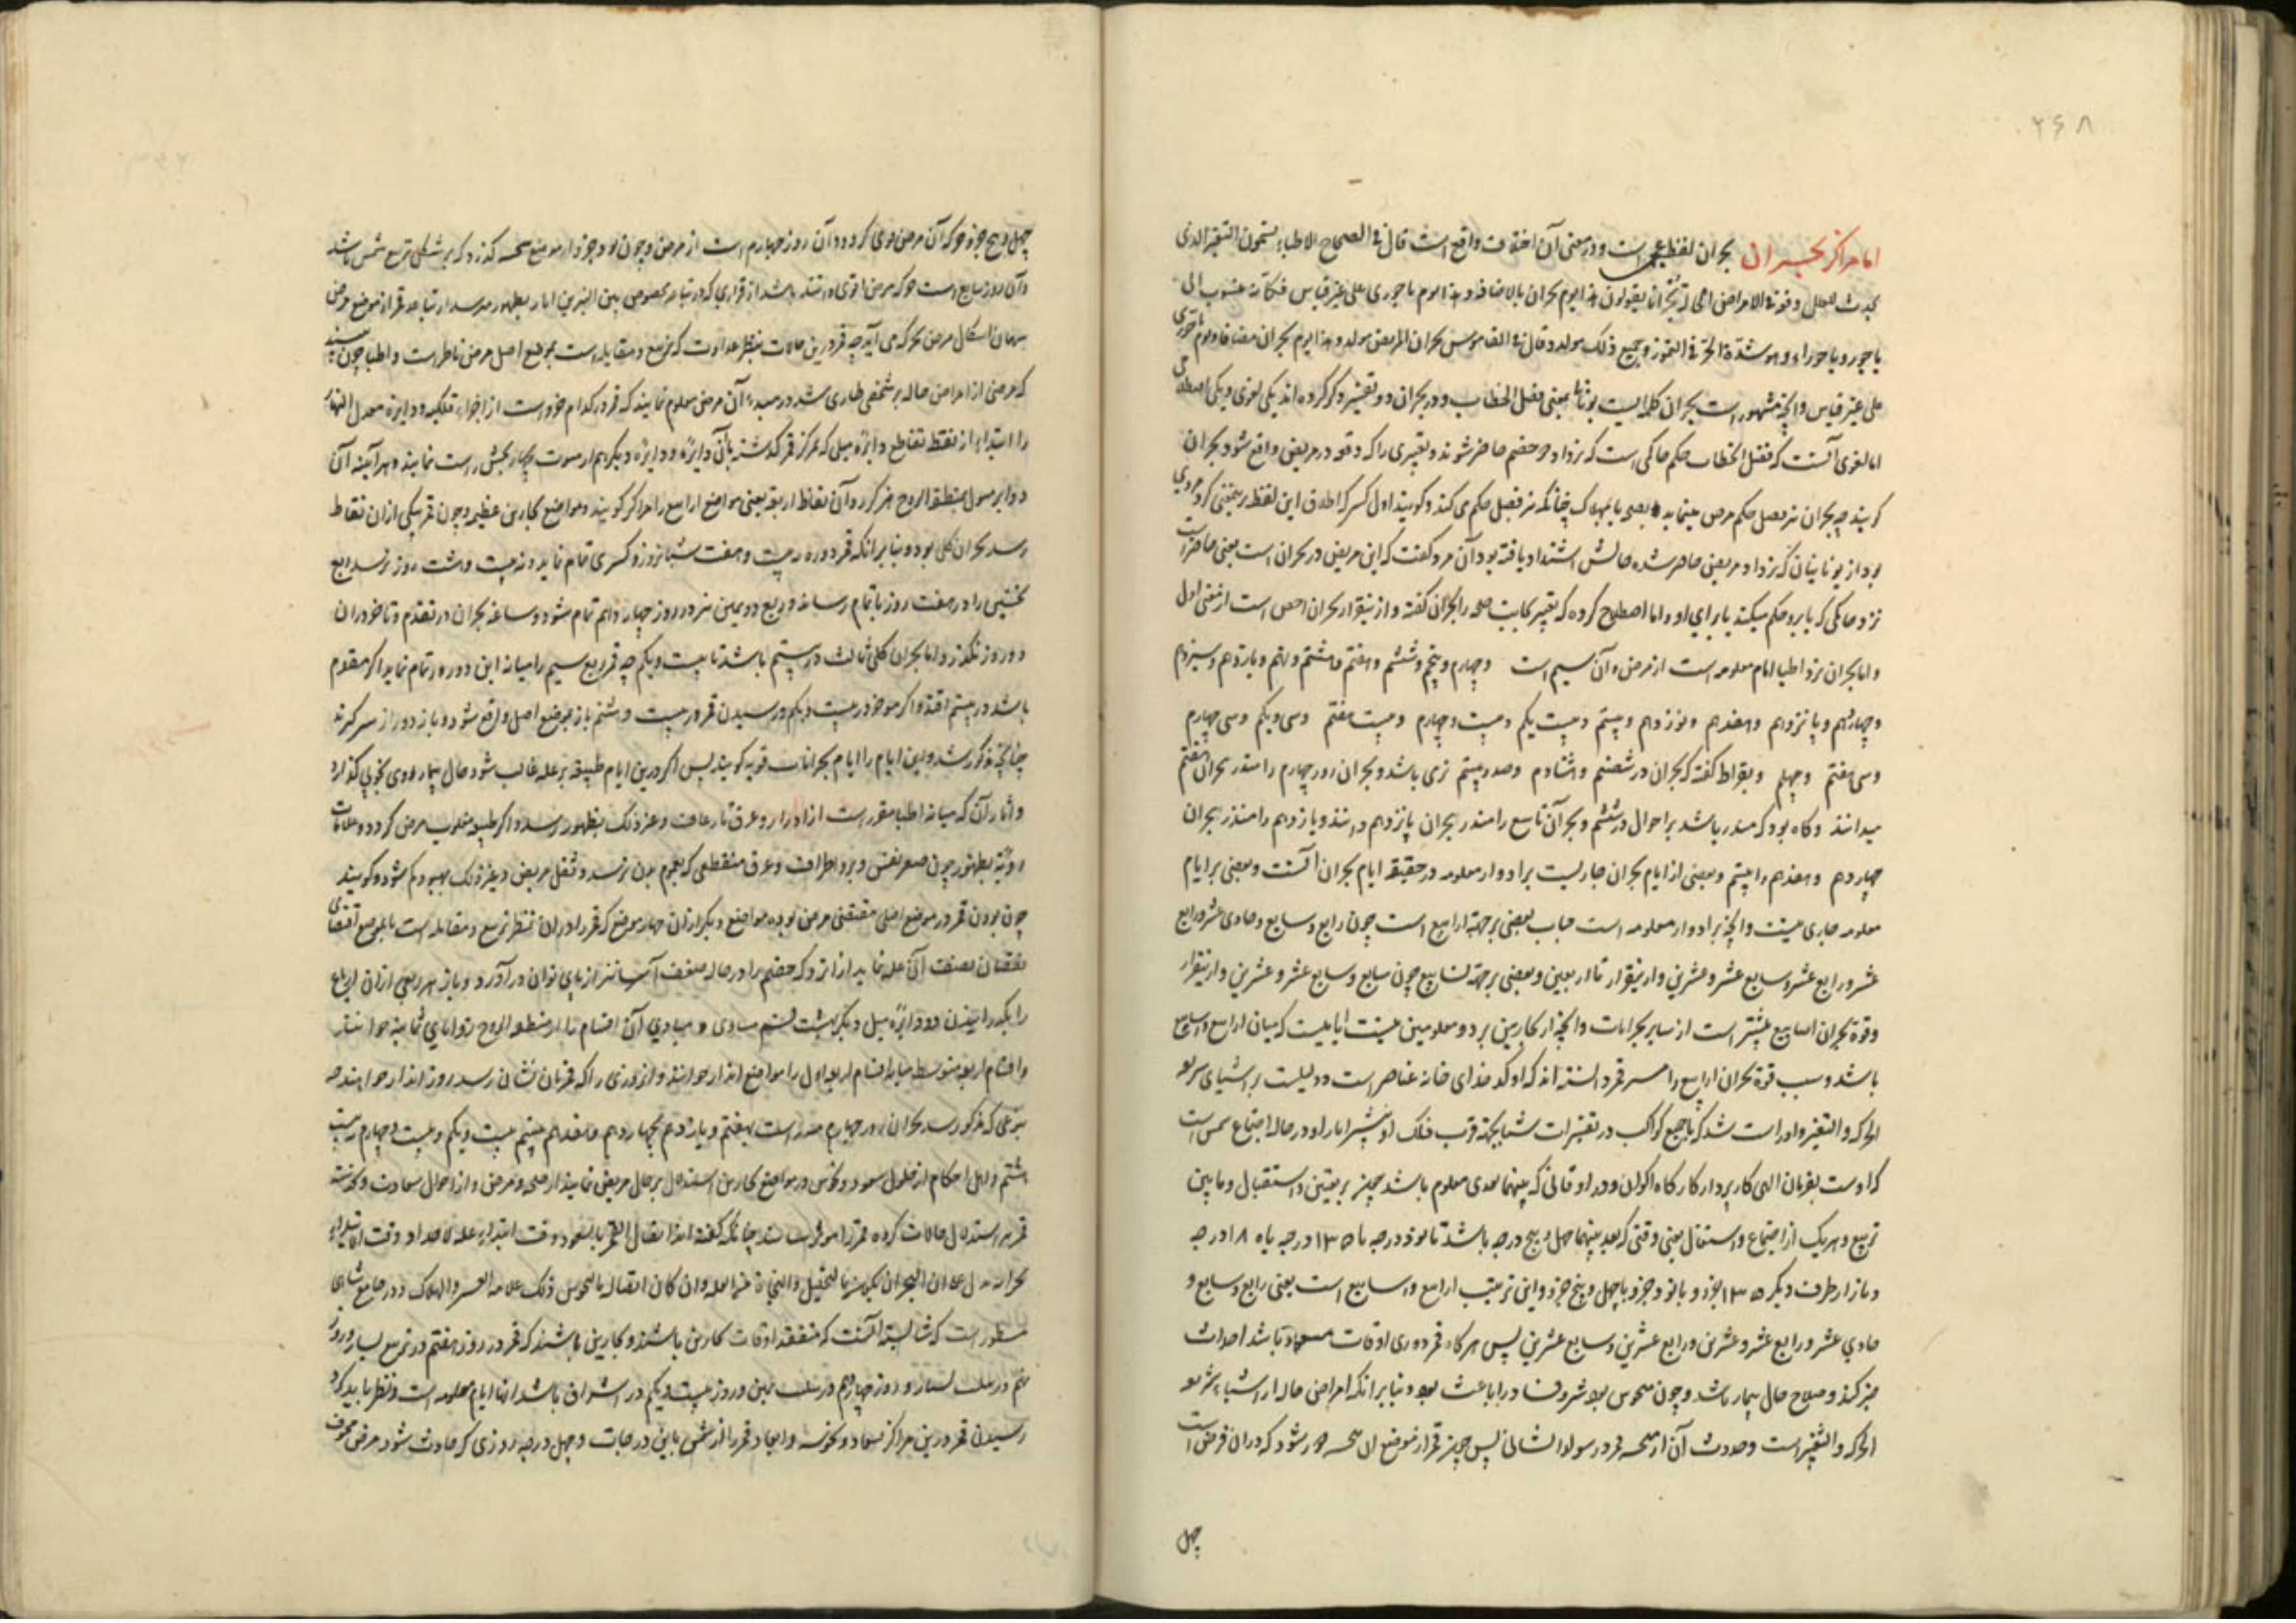 ۲۶۸
اما مراکز بحران بحران لفظ عجمی است و در معنی آن اختلاف واقع است قال فی الصحاح الاطباء یسمون التغیر الذی
یحدث للعلیل دفعة فی الامراض الحادة بحرانا یقولون هذا یوم بحران بالاضافة و هذا یوم باحوری علی غیر قیاس فکانه منسوب الی
باحور و باحوراء و هو شدة الحر فی التموز و جمیع ذلک مولد و قال فی القاموس بحران المریض مولد و هذا یوم بحران مضافا و یوم باحوری
علی غیر قیاس و آنچه مشهور است بحران کلمه ایست یونانی بمعنی فصل الخطاب و در بحران دو تفسیر ذکر کرده اند یکی لغوی و یکی اصطلاحی
اما لغوی آنست که فصل الخطاب حکم حاکمی است که نزد او دو خصم حاضر شوند و تغییری را که دفعة در مریض واقع شود بحران
گویند چه بحران نیز فصل حکم مرض مینماید بصحه یا بهلاک چنانکه نیز فصل حکم می کند و گویند اول کسی که اطلاق این لفظ بر یمعنی کرد مردی
بود از یونانیان که نزد او مریضی حاضر شده حالش اشتداد یافته بود آن مرد گفت که این مریض در بحران است یعنی حاضر است
نزد حاکمی که یا بر او حکم میکند یا برای او و اما اصطلاح کرده که تغییر بجانب صحه را بحران گفته و ازینقرار بحران اخص است از معنی اول
و اما بحران نزد اطبا ایام معلومه است از مرض و آن سیم است و چهارم و پنجم و ششم و هفتم و هشتم و نهم و یازدهم و سیزدهم
و چهاردهم و پانزدهم و هفدهم و نوزدهم و بیستم و بیست یکم و بیست و چهارم و بیست هفتم و سی و یکم و سی چهارم
و سی هفتم و چهلم و بقراط گفته که بحران در شصتم و هشتادم و صد و بیستم نزی باشد و بحران روز چهارم را منذر بحران هفتم
میدانند و گاه بود که منذر باشد بر احوال در ششم و بحران تاسع را منذر بحران پانزدهم دانند و یازدهم را منذر بحران
چهاردهم و هفدهم را بیستم و بعضی از ایام بحران جاریست بر ادوار معلومه در حقیقه ایام بحران آنست و بعضی بر ایام
معلومه جاری نیست و آنچه بر ادوار معلومه است حساب بعضی بر جهة ارابیع است چون رابع و سابع و حادی عشر و رابع
عشر و رابع عشر و سابع عشر و عشرین و ازینقرار تا اربعین و بعضی بر جهة اسابیع چون سابع و سابع عشر و عشرین و ازینقرار
وقوة بحران اسابیع بیشتر است از سایر بحرانات و آنچه از بحارین بر دو معلومین نیست ایامیست که میان ارابیع و اسابیع
باشد و سبب قوة بحران ارابیع را مسیر قمر دانسته اند که او کدخدای خانه عناصر است و دلیلست بر اشیای سریعه
الحرکه و التغیر و او را است شرکه با جمیع کواکب در تغییرات شتا بجهة قرب فلک او و تاثیرات او در حاله اجتماع شمس است
که اوست بفرمان الهی کاربردار کارگاه اکوان و در اوقاتی که بینهما بعدی معلوم باشد چون تربیعین و استقبال و مابین
تربیع و هریک از اجتماع و استقبال یعنی وقتی که بعد بینهما چهل و پنج درجه باشد تا نود درجه یا ۱۳۵ درجه یا ۱۸۰ درجه
و باز از طرف دیگر ۱۳۵ بود و یا نود جزو یا چهل و پنج جزو و این ترتیب ارابیع و اسابیع است یعنی رابع و سابع و
حادی عشر و رابع عشر و عشرین و رابع عشرین و سابع عشرین پس هرگاه قمر در ی اوقات مسعود باشد احداث
خیر کند و صلاح حال بیمار باشد و چون منحوس بود شر و فساد را باعث بود و بنابر آنکه امراض حاله از اشیاء سریعه
الحرکه و التغیر است وحدوث آن از قمر در سوالف الشان پس چون قمر از موضع رسد شود که در آن مرض است
چهل
چهل و پنج جزو حرکه آن مرض قوی گردد و آن روز چهارم است از مرض و چون نود جزو از موضع نحسه گذرد که بر شکل تربیع شمس باشد
و آن روز سابع است حرکه مرض اقوی و اشد باشد از قراری که در تباعد مخصوص بین النیرین آثار بظهور میرسد از تباعد قمر از موضع مرض
بهمان اشکال مرض بحرکه می آید چه قمر درین حالات بنظر عداوت که تربیع و مقابله است بموضع اصل مرض ناظر است و اطبا چون بینند
که مرضی از امراض حاله بر شخصی طاری شد در مبداء آن مرض معلوم نمایند که قمر در کدام جزو است از اجزاء فلکیه و دایره معدل النهار
را ابتداء از نقطه تقاطع دایره میلی که بمرکز قمر گذشته بآن دایره و دوایره دیگر هم از سموت بچهار بخش راست نمایند و هر آینه آن
دوایر میول بمنطقة البروج گذرد و آن نقاط اربعه یعنی مواضع ارابیع را مراکز گویند و مواضع بحارین عظیمه و چون قمر بیکی از آن نقاط
رسد بحران کلی بود و بنابر آنکه قمر دوره در بیست و هفت شبانروز و کسری تمام نماید و نه بیست و هشت روز نرسد ربع
نخستین را در هفت روز باتمام رساند و ربع دویمین نیز در روز چهاردهم تمام شود و ساعه بحران در تقدم و تاخر در آن
دو روز نگذرد و اما بحران کلی ثالث در بیستم باشد تا بیست و یکم چه قمر ربع سیم را میانه این دو روز تمام نماید اگر مقدم
باشد در بیستم افتد و اگر موخر در بیست و یکم و رسیدن قمر در بیست و هشتم باز بموضع اصل واقع شود و باز دور از سر گیرند
چنانچه مذکور شد و این ایام را ایام بحرانات قویه گویند پس اگر درین ایام طبیعه بر عله غالب شود حال بیمار روی بخوبی گذارد
و آثار آن که میانه اطبا مقرر است از ادرار و عرق تا رعاف و غیر ذلک بظهور رسد و اگر طبیعه مغلوب مرض گردد و علامات
ردیه بظهور چون صغر نفس و برد اطراف و عرق منقطعی که بعموم بدن نرسد و ثقل مریض و غیر ذلک بهبود کم شود و گویند
چون بودن قمر در موضع اصلی مقتضی مرض بوده مواضع دیگر از آن چهار موضع که قمر را در آن نظر تربیع و مقابله است با موضع اقتضای
نقصان بضعف آن عله نماید از آنرو که خصم را در حاله ضعف آسانتر از پای توان در آورد و باز هر ربعی از آن ارباع
را بگذرانیدن دو دایره میل دیگر بهشت قسم مساوی و مبادی آن اقسام را از منطقة البروج زوایای ثمانیه خوانند
و اقسام اربعه متوسط میانه اقسام اربعه اول را مواضع انذار خوانند و از روزی را که قمر بآن نشان رسد روز انذار خوانند چه
بنوعی که مذکور شد بحران روز چهارم منذر است بهفتم و یازدهم بچهاردهم و هفدهم بیستم بیست و یکم و بیست و چهارم بیست
هشتم و اهل احکام از حلول سعود و نحوس در مواضع بحارین استدلال بر حال مریض نمایند از صحه و مرض و از احوال سعادت و نحوسة
قمر بر استدلال حالات کرده قمر را مؤثر شناسند چنانکه گفته اند اتصال القمر بالسعود وقت ابتداء علة حاده او وقت
بحران یدل علی ان البحران یکون بالتحلیل و النجاة من العلة و ان کان اتصاله بالنحوس ذلک علامه العسر و الهلاک و در جامع شاهی
مسطور است که شایسته آنست که متفقد اوقات بحارین باشند و بحارین باشند که قمر در روز هفتم در تربیع یسار و روز
نهم در مثلث یسار و روز چهاردهم در مثلث یمین و روز بیست و یکم در اشراق باشد اینها ایام معلومه است و نظر باید کرد
رسیدن قمر درین مراکز بسعاد و نحوسه و ابعاد قمر را از شمس باین درجات و چهل درجه روزی که حادث شود مرض مخوف